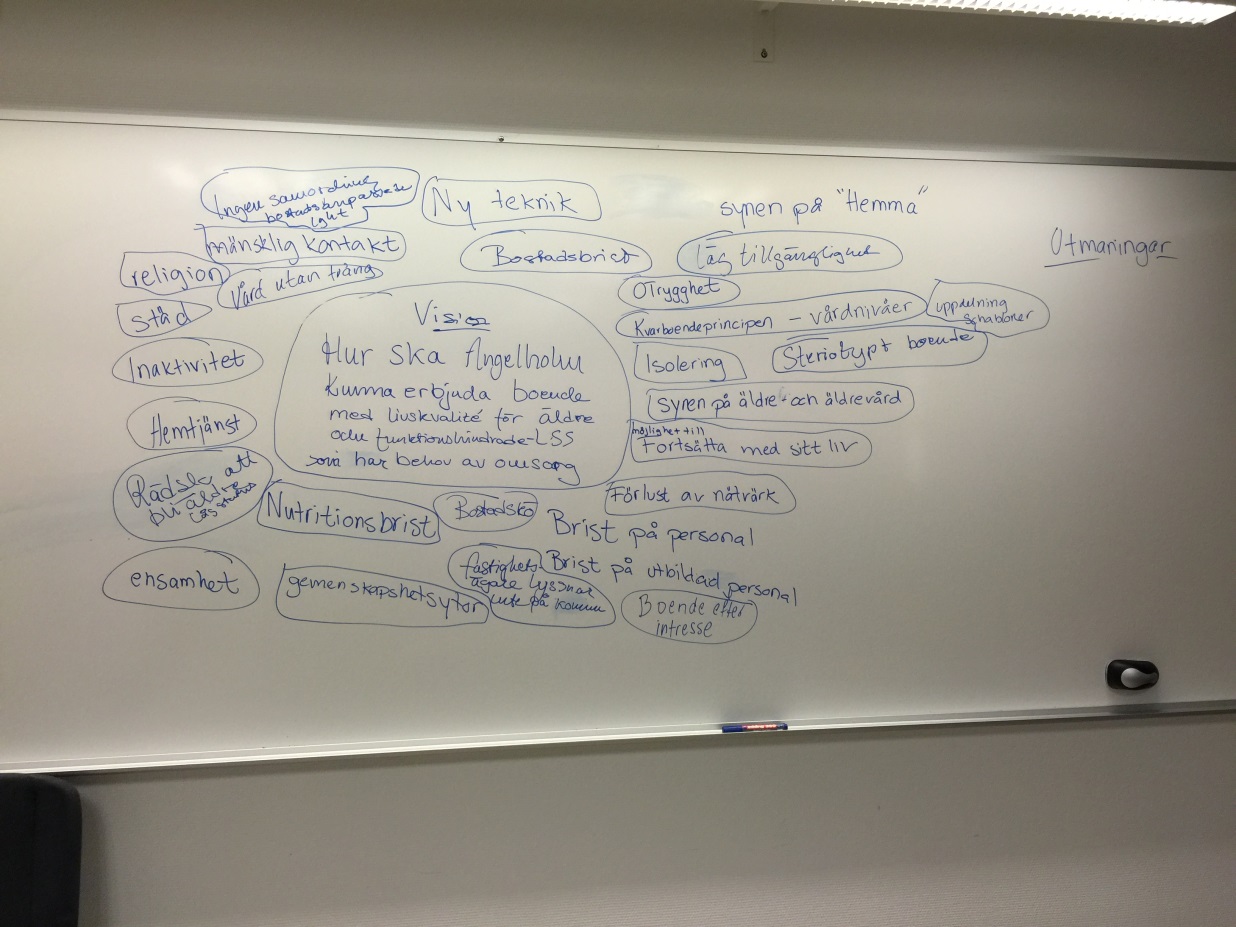 Ingen samordning
Ny teknik
synen på "Hemma"
mänsklig kontakt
Bostadsbrist
Låg tillgänglighet
Utmaningar
religion
Vård utan tvång
Otrygghet
städ
Kvarboendeprincipen - vårdnivåer
uppdelning
schabloner
Inaktivitet
Isolering
Steriotypt boende
Vision
Hur ska Ängelholm
kunna erbjuda boende
med livskvalité för äldre
och funktionshindrade-LSS
som har behov av omsorg
Synen på äldre- och äldrevård
Hemtjänst
möjlighet till
Fortsätta med sitt liv
Rädsla att
bli äldre
Nutritionsbrist
Bostadskö
Förlust av nätverk
Brist på personal
ensamhet
gemenskapshetsytor
fastighets-
ägare lyssnar
inte på kommun
Brist på utbildad personal
Boende efter
intresse